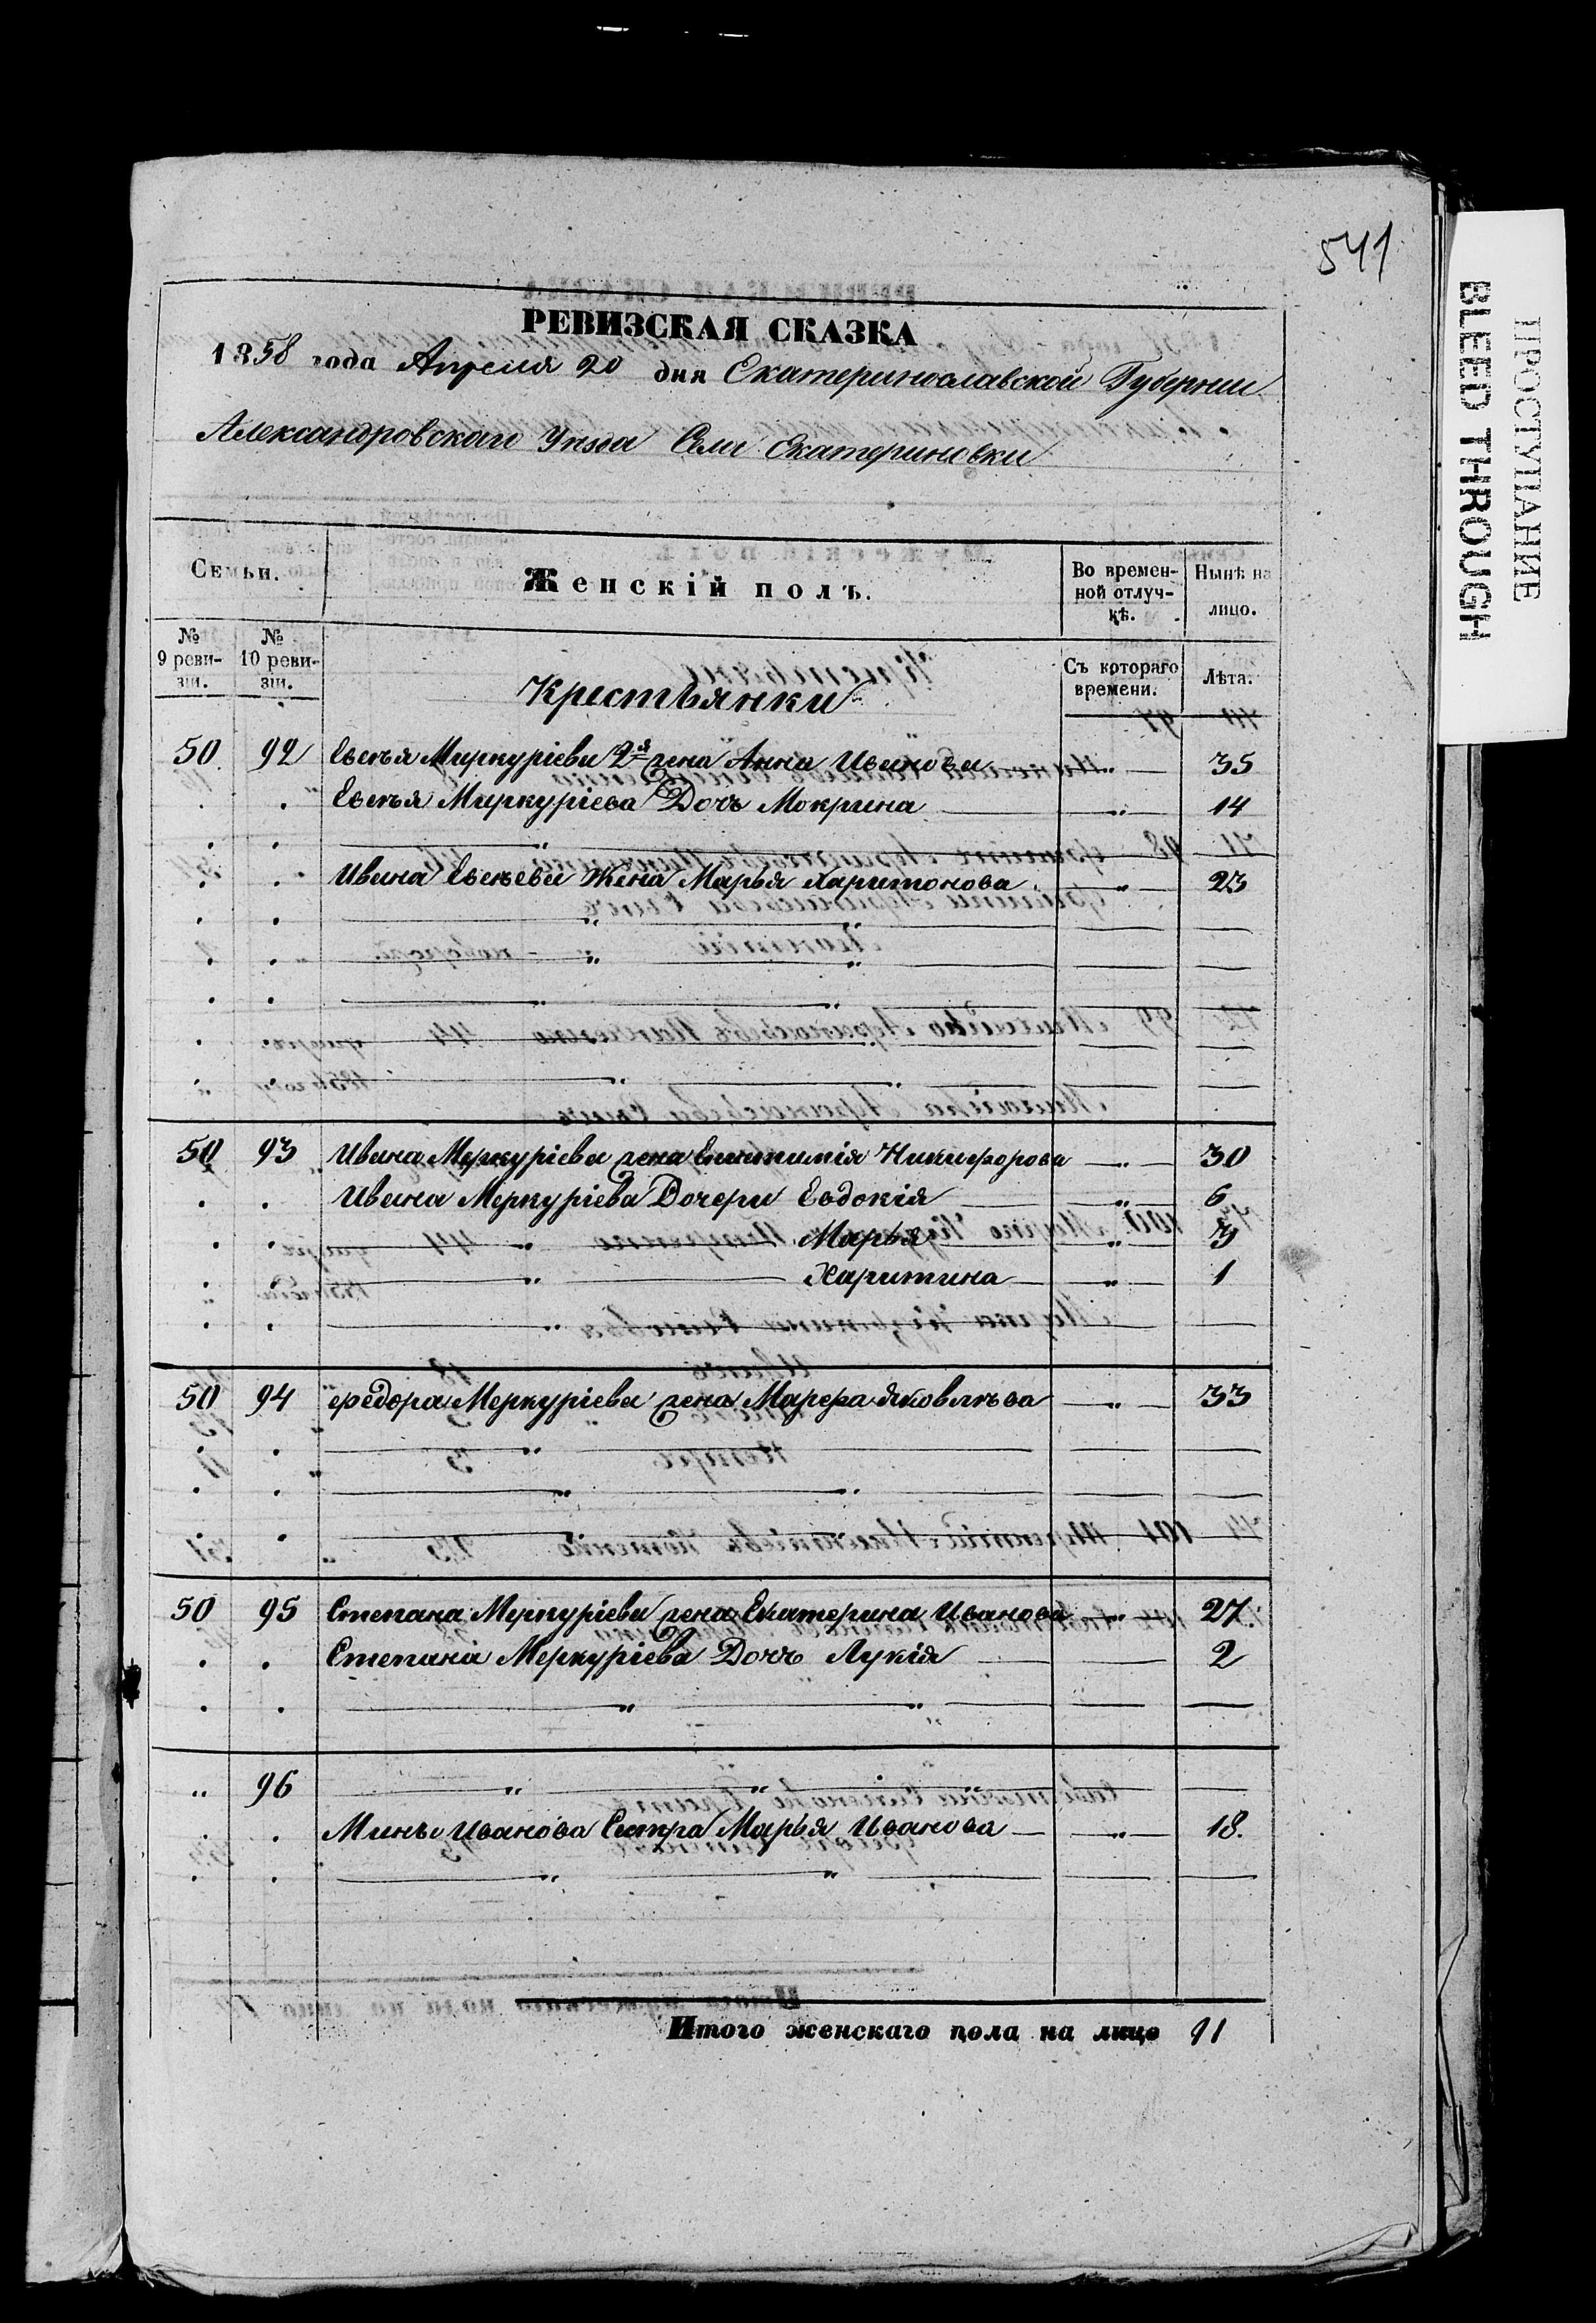 541
РЕВИЗСКАЯ СКАЗКА
1858 года Апреля 20 дня Екатеринославской Губернии
Александровскаго Уѣзда Села Екатериновки
Семьи.
Женскій полъ.
Во времен-
ной отлуч-
кѣ.
Нынѣ на
лицо.
№
9 реви-
зіи.
№
10 реви-
зіи.
Съ котораго
времени.
Лѣта.
Крестьянки
50 92 Евсѣя Меркуріева 2я жена Анна Иванова 35
Евсѣя Меркуріева Дочь Мокрина 14
Ивана Евсѣева Жена Марья Харитонова 23
50 93 Ивана Меркуріева жена Никифорова 30
Ивана Меркуріева Дочери Евдокія 6
Марья 3
Харитина 1
50 94 Федора Меркуріева жена Марфа Яковлѣва 33
50 95 Степана Меркуріева жена Екатерина Иванова 27
Степана Меркуріева Дочь Лукія 2
96
Иванова Сестра Марья Иванова 18.
Итого женскаго пола на лицо 11
ПРОСТУПАНИЕ
BLEED THROUGH